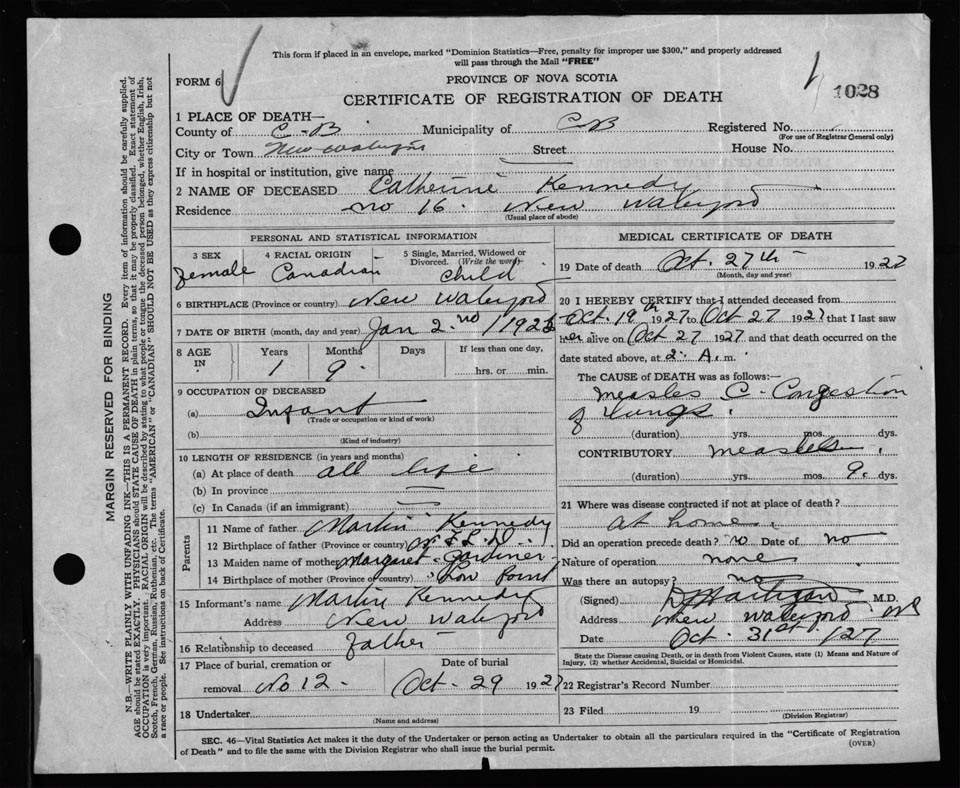 This form if placed in an envelope, marked "Dominion Statistics—Free, penalty for improper use $300," and properly addressed
will pass through the Mail "FREE"
FORM 6
PROVINCE OF NOVA SCOTIA
1028
CERTIFICATE OF REGISTRATION OF DEATH
1 PLACE OF DEATH—
County of C-B Municipality of CB Registered No.
(For use of Registrar General only)
City or Town New Waterford Street House No.
If in hospital or institution, give name
2 NAME OF DECEASED Catherine Kennedy
Residence No 16. New Waterford
(Usual place of abode)
PERSONAL AND STATISTICAL INFORMATION
3 SEX 4 RACIAL ORIGIN 5 Single, Married, Widowed or
Divorced. (Write the word)
female Canadian child
6 BIRTHPLACE (Province or country) New Waterford
7 DATE OF BIRTH (month, day and year) Jan 2nd 1926
8 AGE IN Years Months Days If less than one day,
1 9. hrs. or min.
9 OCCUPATION OF DECEASED
(a) Infant
(Trade or occupation or kind of work)
(b)
(Kind of industry)
10 LENGTH OF RESIDENCE (in years and months)
(a) At place of death all life
(b) In province
(c) In Canada (if an immigrant)
Parents
11 Name of father Martin Kennedy
12 Birthplace of father (Province or country) NFLD.
13 Maiden name of mother Margaret Gardiner
14 Birthplace of mother (Province or country) Low Point
15 Informant's name Martin Kennedy
Address New Waterford
16 Relationship to deceased father
17 Place of burial, cremation or Date of burial
removal No 12. Oct-29 1927
18 Undertaker
(Name and address)
MEDICAL CERTIFICATE OF DEATH
19 Date of death Oct. 27th 1927
(Month, day and year)
20 I HEREBY CERTIFY that I attended deceased from
Oct. 19th 1927 to Oct 27 1927 that I last saw
her alive on Oct 27 1927 and that death occurred on the
date stated above, at 2. A.m.
The CAUSE of DEATH was as follows:—
Measles C-Congestion
of Lungs.
(duration) yrs. mos. dys.
CONTRIBUTORY Measles
(duration) yrs. mos. 9. dys.
21 Where was disease contracted if not at place of death?
At home.
Did an operation precede death? no Date of no
Nature of operation none
Was there an autopsy? no
(Signed) M.D.
Address New Waterford NS
Date Oct. 31st /27
State the Disease causing Death, or in death from Violent Causes, state (1) Means and Nature of
Injury, (2) whether Accidental, Suicidal or Homicidal.
22 Registrar's Record Number
23 Filed 19
(Division Registrar)
SEC. 46—Vital Statistics Act makes it the duty of the Undertaker or person acting as Undertaker to obtain all the particulars required in the "Certificate of Registration
of Death" and to file the same with the Division Registrar who shall issue the burial permit.
(OVER)
MARGIN RESERVED FOR BINDING
N.B.—WRITE PLAINLY WITH UNFADING INK—THIS IS A PERMANENT RECORD. Every item of information should be carefully supplied.
AGE should be stated EXACTLY. PHYSICIANS should STATE CAUSE OF DEATH in plain terms, so that it may be properly classified. Exact statement of
OCCUPATION is very important. RACIAL ORIGIN will be described by stating to what people or tongue the deceased person belonged, whether English, Irish,
Scotch, French, German, Russian, Ruthenian, etc. The terms "AMERICAN" or "CANADIAN" SHOULD NOT BE USED as they express citizenship but not
a race or people. See instructions on back of Certificate.